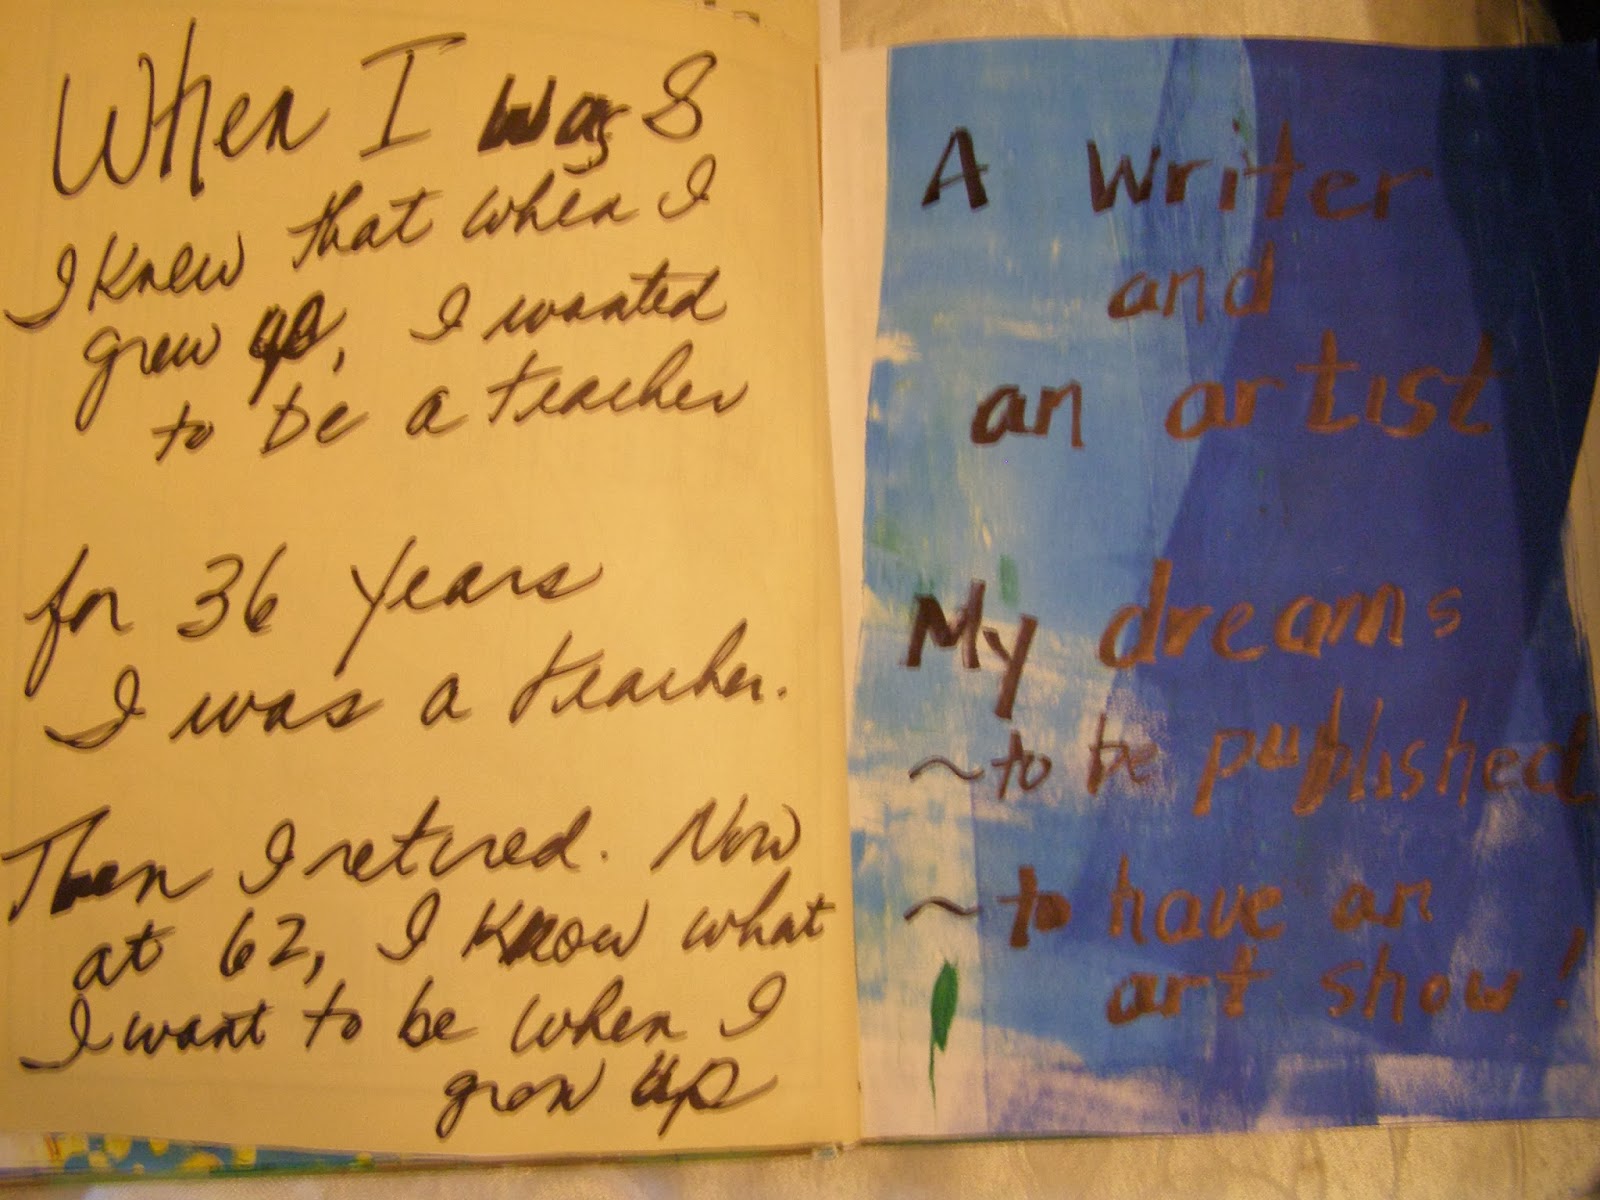 When I was 8
I knew that when I
grew up, I wanted
to be a teacher
for 36 years
I was a teacher.
Then I retired. Now
at 62, I know what
I want to be when I
grow up
A writer
and
an artist
My dreams
~to be published
~to have an
art show!